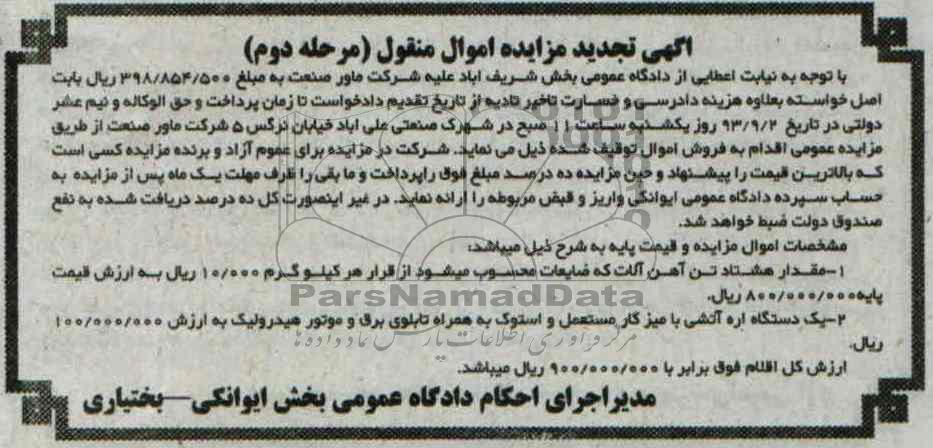 اگهی تجدید مزایده اموال منقول (مرحله دوم)
با توجه به نیابت اعطایی از دادگاه عمومی بخش شریف اباد علیه شرکت ماور صنعت به مبلغ ۳۹۸/۸۵۴/۵۰۰ ریال بابت
اصل خواسته بعلاوه هزینه دادرسی و خسارت تاخیر تادیه از تاریخ تقدیم دادخواست تا زمان پرداخت و حق الوکاله و نیم عشر
دولتی در تاریخ ۹۳/۹/۲ روز یکشنبه ساعت ۱۱ صبح در شهرک صنعتی علی اباد خیابان نرگس ۵ شرکت ماور صنعت از طریق
مزایده عمومی اقدام به فروش اموال توقیف شده ذیل می نماید. شرکت در مزایده برای عموم آزاد و برنده مزایده کسی است
که بالاترین قیمت را پیشنهاد و حین مزایده ده درصد مبلغ فوق راپرداخت و ما بقی را ظرف مهلت یک ماه پس از مزایده به
حساب سپرده دادگاه عمومی ایوانکی واریز و قبض مربوطه را ارائه نماید. در غیر اینصورت کل ده درصد دریافت شده به نفع
صندوق دولت ضبط خواهد شد.
مشخصات اموال مزایده و قیمت پایه به شرح ذیل میباشد:
۱-مقدار هشتاد تن آهن آلات که ضایعات محسوب میشود از قرار هر کیلو گرم ۱۰/۰۰۰ ریال به ارزش قیمت
پایه۸۰۰/۰۰۰/۰۰۰ ریال.
ParsNamadData
۲-یک دستگاه اره آتشی با میز کار مستعمل و استوک به همراه تابلوی برق و موتور هیدرولیک به ارزش ۱۰۰/۰۰۰/۰۰۰
مرکز فرآوری اطلاعات پارس نماد داده ها
ریال.
ارزش کل اقلام فوق برابر با ۹۰۰/۰۰۰/۰۰۰ ریال میباشد.
مدیراجرای احکام دادگاه عمومی بخش ایوانکی-بختیاری